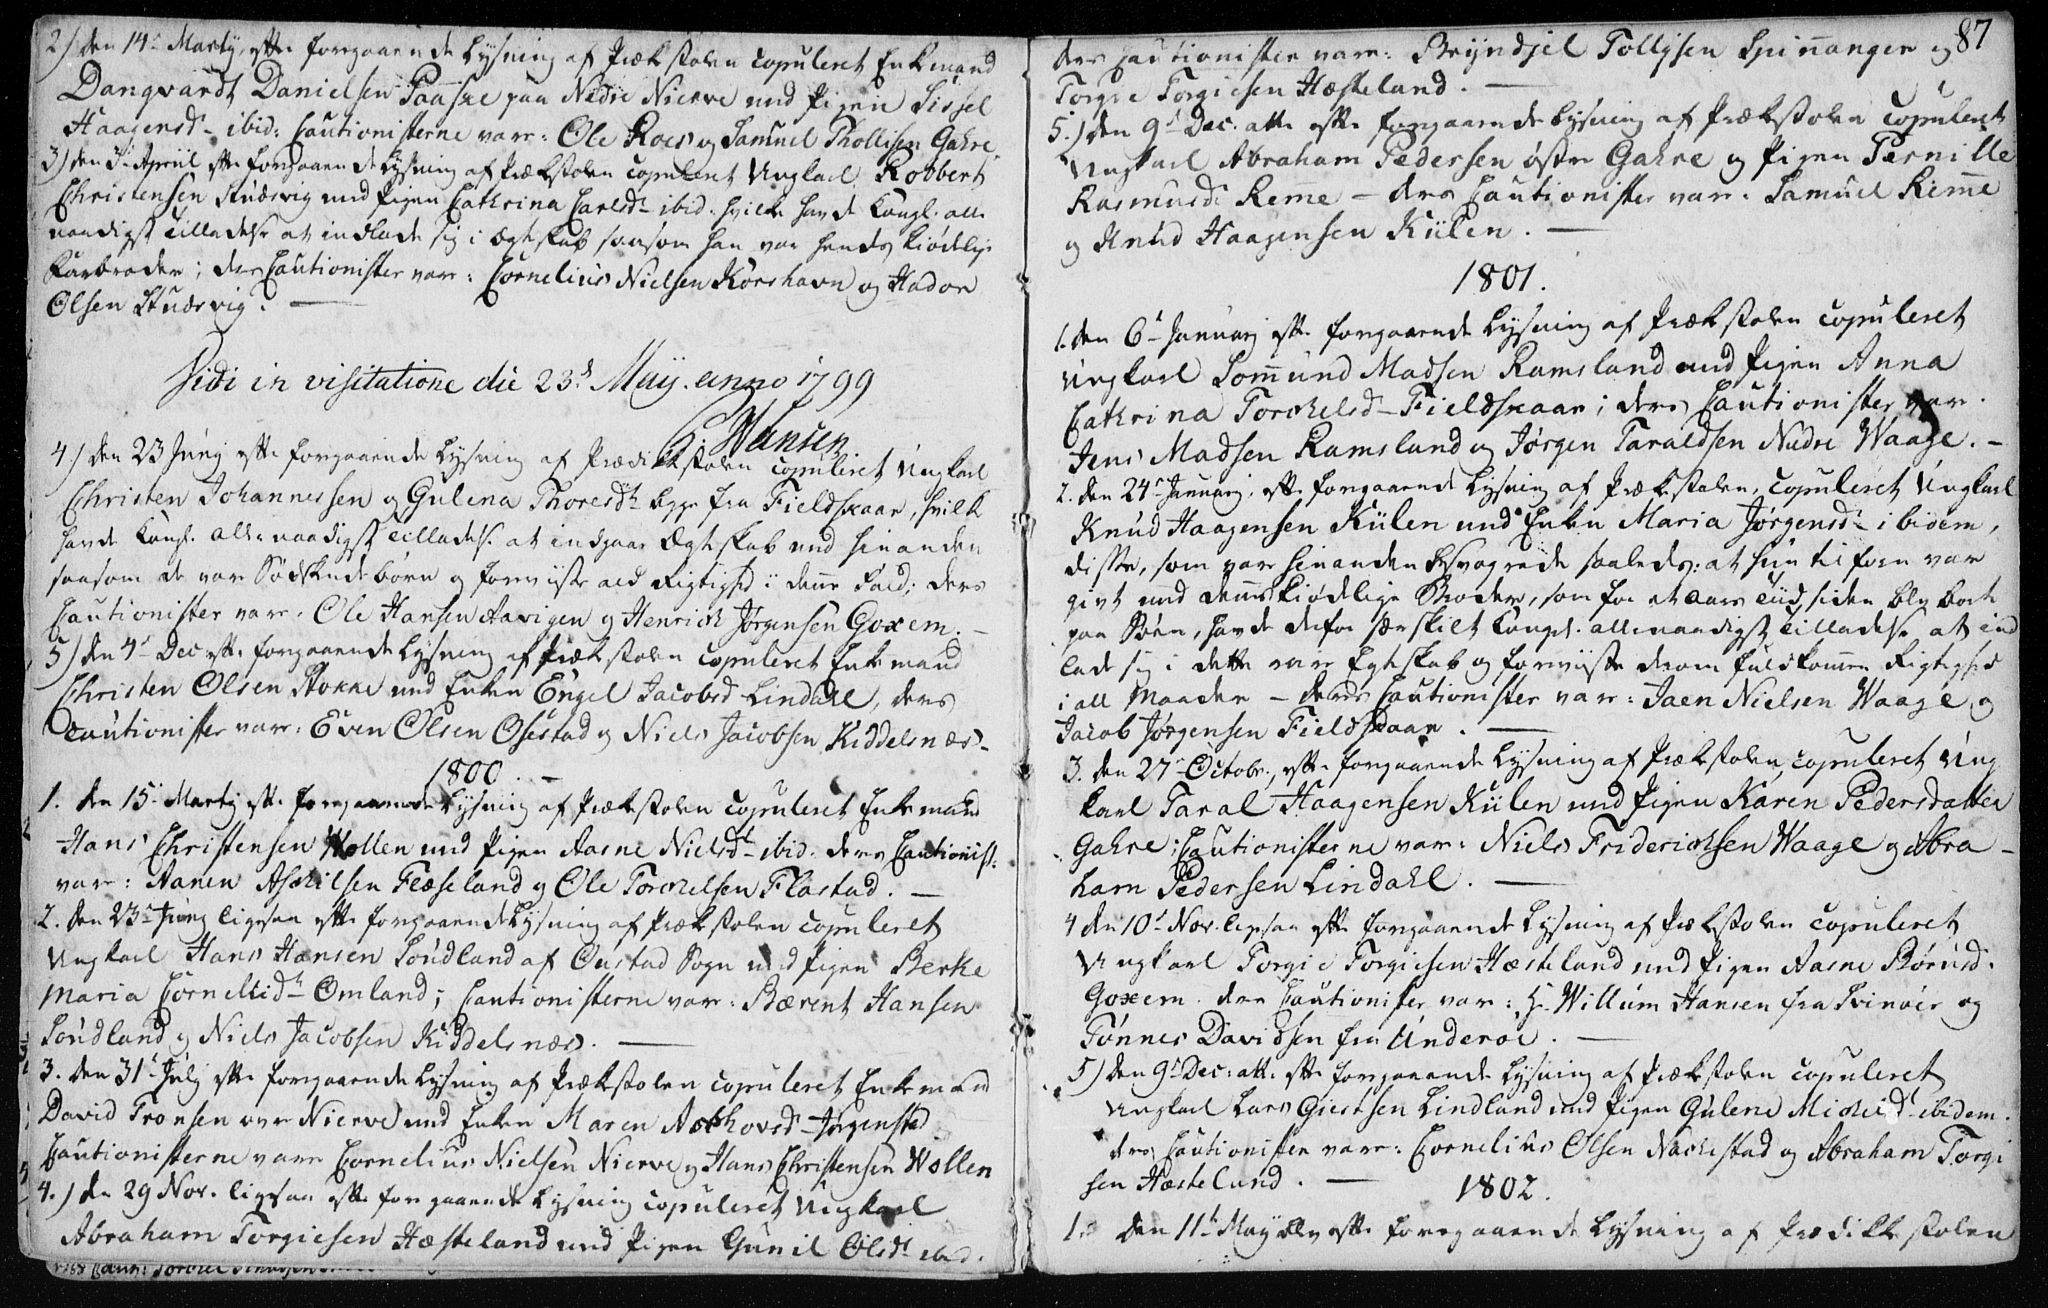 2) den 14de Martj, efter foregaaende Lysning af Prækstolen copuleret Enkemand
Dangvardt Danielsen Paaske paa Nedre Nierve med Pigen Sissel
Haagensd. ibid: Cautionisterne var: Ole Roes og Samuel Thollisen Gahre
3) den 3de Aprill efter foregaaende Lysning af Prækstolen copuleret Ungkarl Robbert
Christensen Stuersvig med Pigen Cathrina Carlsd. ibid. hvilke havde Kongl. alle
naadigst Tilladelse at indlade sig i Ægteskab saasom han var hendes kiødelige
Farbroder; deres Cautionister var: Cornelius Nielsen Korshavn og Hador
Olsen Stuersvig.
Vidi in visitatione die 23d Maij. anno 1799
Hansen
4) den 23 Junj efter foregaaende Lysning af Prædikstolen copuleret Ungkarl
Christen Johannessen og Gulena Thoresdt begge fra Fieldskaar, hvilke
havde Kongl. allernaadigst Tilladelse at indgaae Ægteskab med hinanden
saasom de var Sødskendebørn og forviiste al Rigtighed i denne Fald; deres
Cautionister var: Ole Hansen Aavigen og Henrich Jørgensen Goxem.
5) den 4de Dec efter foregaaende Lysning af Prækstolen copuleret Enkemand
Christen Olsen Stokke med Enken Engel Jacobsd Lindahl, deres
Cautionister var: Even Olsen Osestad og Niels Jacobsen Kiddelsnæs.
1800.
1. den 15de Martj efter foregaaende Lysning af Prækstolen copuleret Enkemand
Hans Christensen Wollen med Pigen Aasne Nielsdt ibid. deres Cautionist.
var: Aanen Askilsen Flæseland og Ole Torchelsen Flastad.
2. den 23de Junj ligesaa efter foregaaende Lysning af Prækstolen copuleret
Ungkarl Hans Hansen Søndland af Oustad Sogn med Pigen Berte
Maria Cornelid. Omland; Cautionisterne var: Bærent Hansen
Søndland og Niels Jacobsen Kiddelsnæs.
3. den 31de Julj efter foregaaende Lysning af Prækstolen copuleret Enkemand
David Tronsen øvre Nierve med Enken Maren Jørgensted
Cautionisterne vare Cornelius Nielsen Nierve og Hans Christensen Wollen
4.) den 29 Nov. ligesaa efter foregaaende Lysning copuleret Ungkarl
Abraham Torgiesen Hæsteland med Pigen Gunil Olsdt ibid.
87
deres Cautionister vare: Bryndjel Tollysen Spinnanger og
Torgie Torgiesen Hæsteland.
5.) den 9de Dec. efter foregaaende Lysning af Prækstolen copuleret
Ungkarl Abraham Pedersen østre Gahre og Pigen Pernille
Rasmusd. Reme deres Cautionister var: Samuel Reme
og Knud Haagensen Kiilen.
1801.
1. den 6de Januarj efter foregaaende Lysning af Prækstolen copuleret
Ungkarl Sommund Madsen Ramsland med Pigen Anna
Cathrina Torchelsd. Fieldskaar; deres Cautionister var.
Jens Madsen Ramsland og Jørgen Taraldsen Nedre Waage.
2. den 24de Januarj, efter foregaaende Lysning af Prækstolen, copuleret Ungkarl
Knud Haagensen Kiilen med Enken Maria Jørgensd. ibidem,
disse, som var hinanden besvogrede saaledes: at hun tilforn var
givt med dennes kiødelige Broder, som for et aars Tiid siden blev borte
paa Søen, havde derfor særskilt Kongl. allernaadigst Tilladelse at ind
lade sig i dette Egteskab og forviiste derom fuldkommen Rigtighed
i all Maader - deres Cautionister var: Jaen Nielsen Waage og
Jacob Jørgensen Fieldskaar.
3. den 27de Octobr., efter foregaaende Lysning af Prækstolen, copuleret Ung
karl Taral Haagensen Kiilen med Pigen Karen Pedersdatter
Gahre; Cautionisterne var: Niels Friderichsen Waage og Abra-
ham Pedersen Lindahl.
4 den 10de Nov. ligesaa efter foregaaende Lysning af Prækstolen copuleret
Ungkarl Torgie Torgiesen Hæsteland med Pigen Aasne Børusd.
Goxem. deres Cautionister var: Hr Willum Hansen fra Svinøer og
Tønnes Davidsen fra Underøe.
5) den 9de Dec: efter foregaaende Lysning af Prækstolen copuleret
Ungkarl Lars Giertsen Lindland med Pigen Gulene ibidem.
deres Cautionister vare: Cornelius Olsen Nachestad og Abraham Torgi
sen Hæsteland.
1802.
1. den 11te Maij blev efter foregaaende Lysning af Prædikkestolen